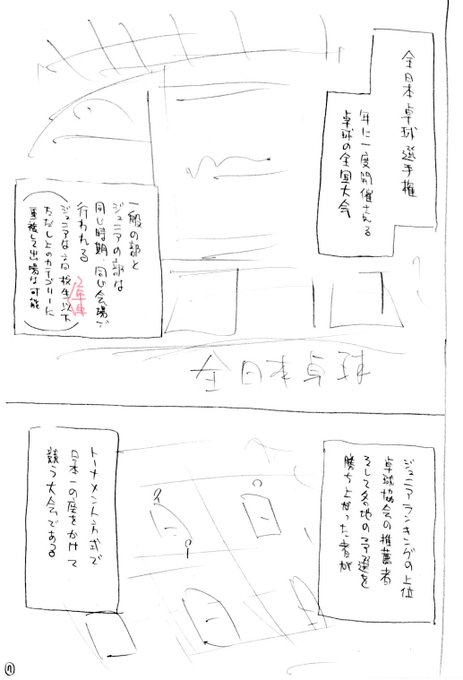 全日本卓球選手権
年に一度開催される
卓球の全国大会
一般の部と
ジュニアの部は
同じ時期・同じ会場で
行われる
(ジュニアは高校2年生以下
ただし上のカテゴリーに
重複して出場は可能)
ジュニアランキングの上位
卓球協会の推薦者
そして各地の予選を
勝ち上がった者が
トーナメント方式で
日本一の座をかけて
競う大会である
⑦